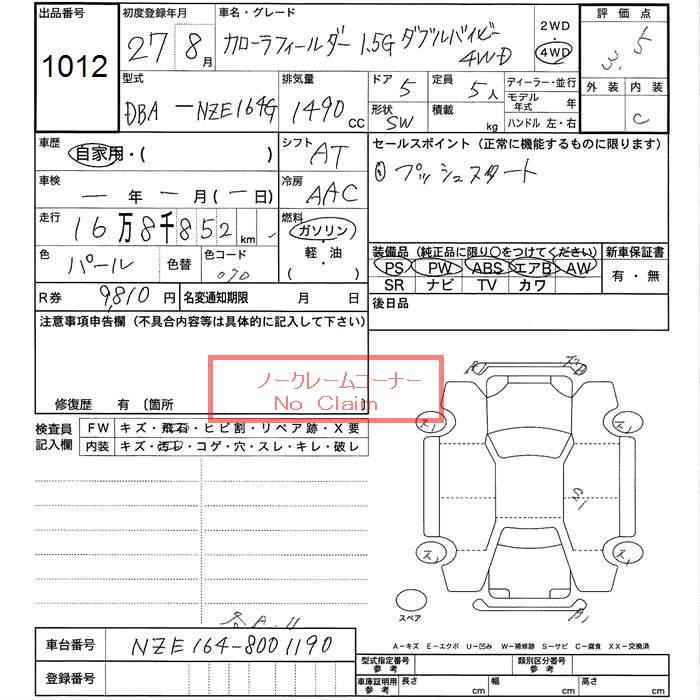 出品番号
1012
初度登録年月
27 8月
車名・グレード
カローラフィールダー 1.5G ダブルバイビー 4WD
2WD
・
4WD
評価点
3.5
外装 内装
C
型式
DBA-NZE164G
排気量
1490 cc
ドア 5
定員 5人
形状 SW
積載 kg
ディーラー・並行
モデル年式 年
ハンドル 左・右
車歴
自家用・( )
シフト AT
車検
- 年 - 月 (- 日)
冷房 AAC
走行
16万8千852 km
燃料
ガソリン・軽・油
( )
色 パール 色替
色コード 070
R券 9,810円 名変通知期限 月 日
セールスポイント (正常に機能するものに限ります)
① プッシュスタート
装備品 (純正品に限り○をつけてください)
PS PW ABS エアB AW
SR ナビ TV カワ
新車保証書
有・無
後日品
注意事項申告欄 (不具合内容等は具体的に記入して下さい)
ノークレームコーナー
No Claim
修復歴 有 〔箇所 〕
検査員記入欄
FW キズ・飛石・ヒビ割・リペア跡・X要
内装 キズ・汚レ・コゲ・穴・スレ・キレ・破レ
スペア
A1
A-キズ E-エクボ U-凹み W-補修跡 S-サビ C-腐食 XX-交換済
車台番号 NZE164-8001190
登録番号
型式指定番号 参考
類別区分番号 参考
車庫証明用 参考
長さ cm 幅 cm 高さ cm